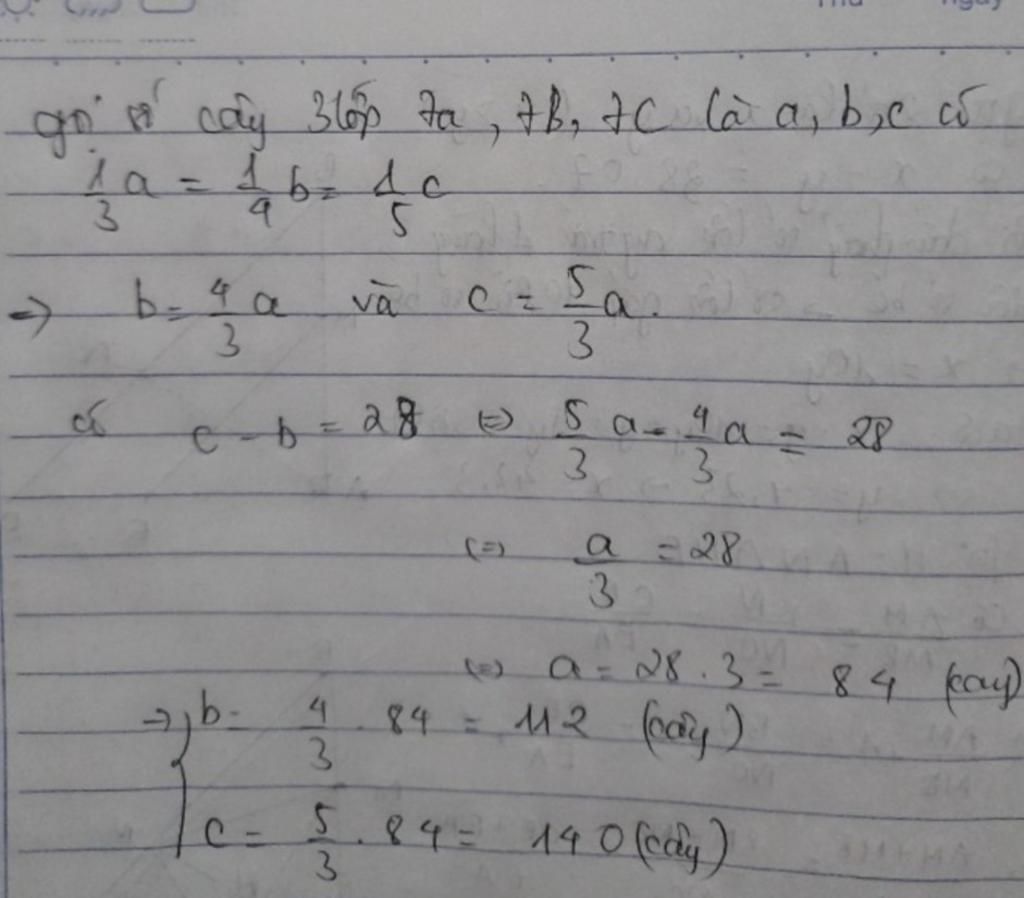 gọi số cây 3 lớp 7a, 7B, 7C là a, b, c có
1/3 a = 1/4 b = 1/5 c
=> b = 4/3 a và c = 5/3 a.
có c - b = 28 <=> 5/3 a - 4/3 a = 28
<=> a/3 = 28
<=> a = 28 . 3 = 84 (cây)
=> { b = 4/3 . 84 = 112 (cây)
c = 5/3 . 84 = 140 (cây)